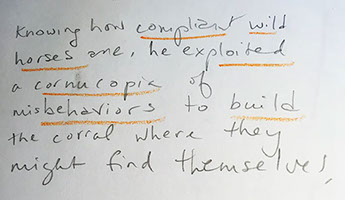 Knowing how compliant wild
horses are, he exploited
a cornucopia of
misbehaviors to build
the corral where they
might find themselves,